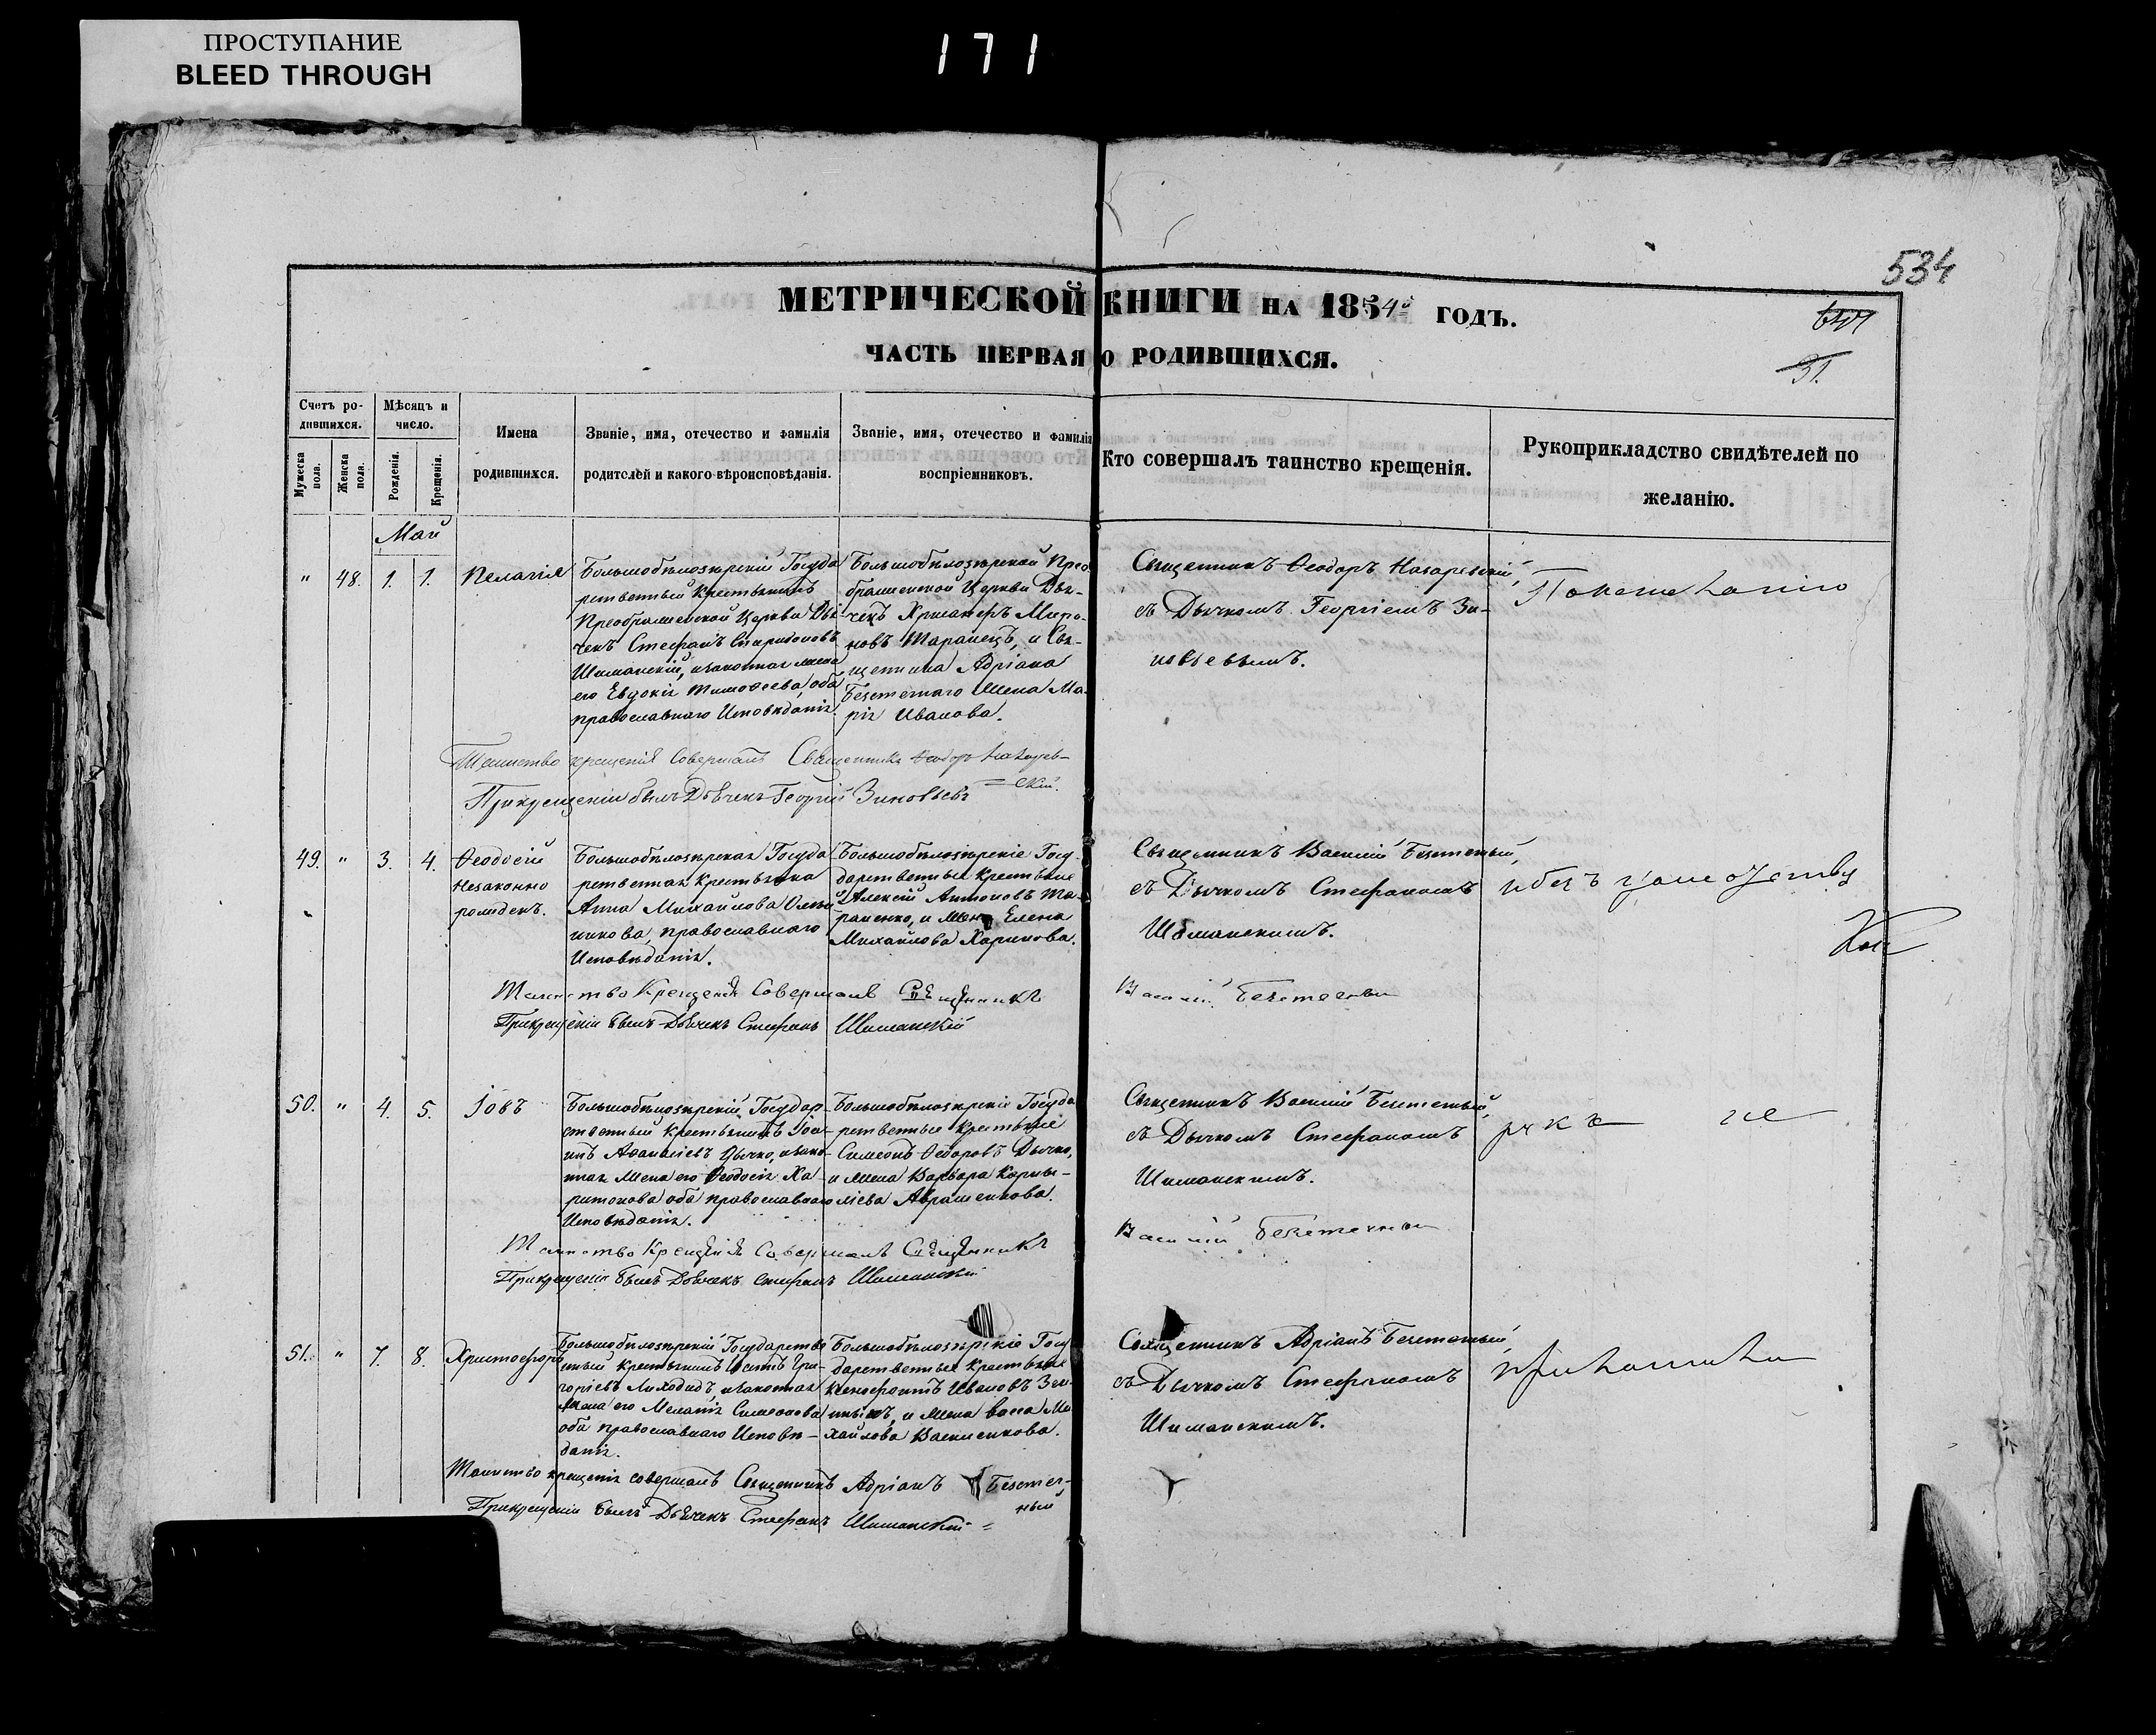 ПРОСТУПАНИЕ
BLEED THROUGH
171
534
МЕТРИЧЕСКОЙ КНИГИ НА 1854й ГОДЪ.
31.
ЧАСТЬ ПЕРВАЯ О РОДИВШИХСЯ.
Счетъ ро-
дившихся.
Мужеска
пола.
Женска
пола.
Мѣсяцъ и
число.
Рожденія.
Крещенія.
Имена
родившихся.
Званіе, имя, отечество и фамилія
родителей и какого вѣроисповѣданія.
Званіе, имя, отечество и фамилія
воспріемниковъ.
Кто совершалъ таинство крещенія.
Рукоприкладство свидѣтелей по
желанію.
Май
" 48. 1. 1. Пелагія
Большобѣлозѣрскій Госуда
рственный Крестьянинъ
Преображенской Церкви Дья
чекъ Стефанъ Спиридоновъ
Шиманскій, изаконная жена
его Евдокія Тимоѳеева, оба
православнаго Исповѣданія.
Большобѣлозѣрской Прео
браженской Церкви Дья-
чекъ Миро-
новъ Таранецъ, и Свя-
щенника Адріана
Безстечнаго Жена Ма-
рія Иванова.
Священникъ Ѳеодоръ Назаревскій,
съ Дьячкомъ Георгіемъ Зи-
новьевымъ.
Таинство крещенія Совершалъ Священникъ Ѳеодоръ Назарев-
скій.
Прикрещеніи былъ Дьячекъ Георгій Зиновьевъ
49. " 3. 4. Ѳеодосій
Незаконно
рожденъ.
Большобѣлозѣрская Госуда
рственная Крестьянка
Анна Михайлова
православнаго
Исповѣданія.
Большобѣлозѣрскіе Госу-
дарственные Крестьяне
Алексій Антоновъ Та-
раненко, и Жена Елена
Михайлова Харинова.
Священникъ Василій Безстечный,
съ Дьячкомъ Стефаномъ
Шиманскимъ.
Таинство Крещенія Совершалъ Священникъ Василій Безстечный
Прикрещеніи былъ Дьячекъ Стефанъ Шиманскій
50. " 4. 5. Іовъ
Большобѣлозѣрскій Государ-
ственный Крестьянинъ Іоа-
нъ Аѳанасіевъ Дычко, изако-
нная Жена его Ѳеодосія Ха-
ритонова оба православнаго
Исповѣданія.
Большобѣлозѣрскіе Госуда
рственные Крестьяне
Симеонъ Ѳедоровъ Дычко,
и жена Варвара Корни-
ліева Авраменкова.
Священникъ Василій Безстечный,
съ Дьячкомъ Стефаномъ
Шиманскимъ.
Таинство Крещенія Совершалъ Священникъ Василій Безстечный
Прикрещеніи былъ Дьячекъ Стефанъ Шиманскій
51. " 7. 8. Христофоръ
Большобѣлозѣрскій Государстве
нный Крестьянинъ Гри-
горіевъ Лиходидъ, изаконная
Жена его Меланія Симеонова
оба православнаго Исповѣ-
данія.
Большобѣлозѣрскіе Госу
дарственные Крестьяне
Ксенофонтъ Ивановъ
и Жена Ми
хайлова Василенкова.
Священникъ Адріанъ Безстечный,
съ Дьячкомъ Стефаномъ
Шиманскимъ.
Таинство крещенія совершалъ Священникъ Адріанъ Безстеч-
ный
Прикрещеніи былъ Дьячекъ Стефанъ Шиманскій